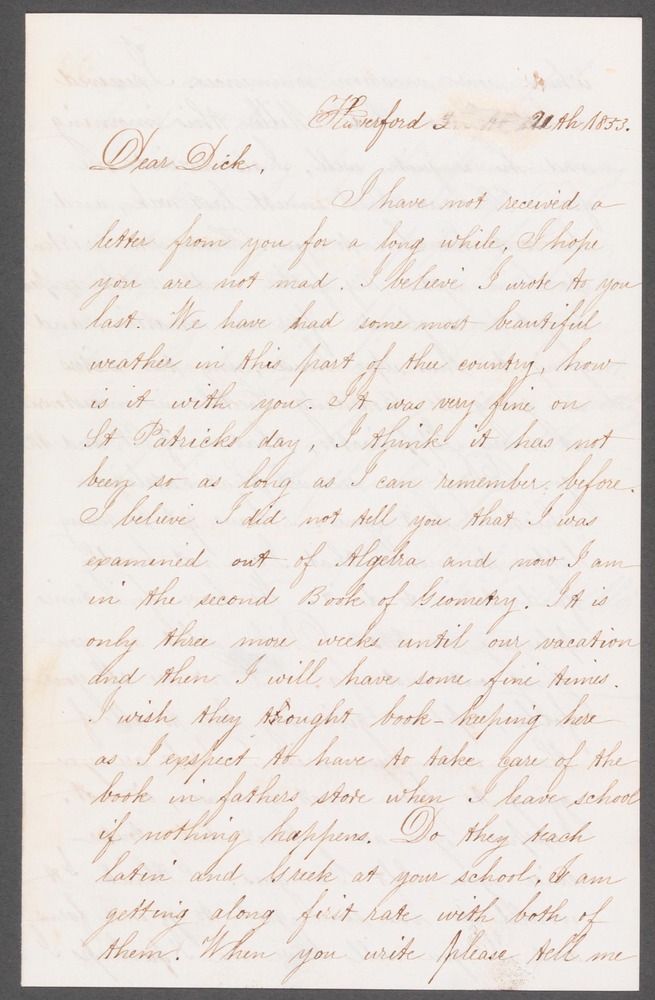 Haverford 20th 1853.
Dear Dick,
I have not received a
letter from you for a long while, I hope
you are not mad. I believe I wrote to you
last. We have had some most beautiful
weather in this part of thee country, how
is it with you. It was very fine on
St Patricks day, I think it has not
been so as long as I can remember before.
I believe I did not tell you that I was
examined out of Algebra and now I am
in the second Book of Geometry. It is
only three more weeks until our vacation
and then I will have some fine times.
I wish they thought book-keeping here
as I exspect to have to take care of the
book in fathers store when I leave school
if nothing happens. Do they teach
latin and Greek at your school, I am
getting along first rate with both of
them. When you write please tell me